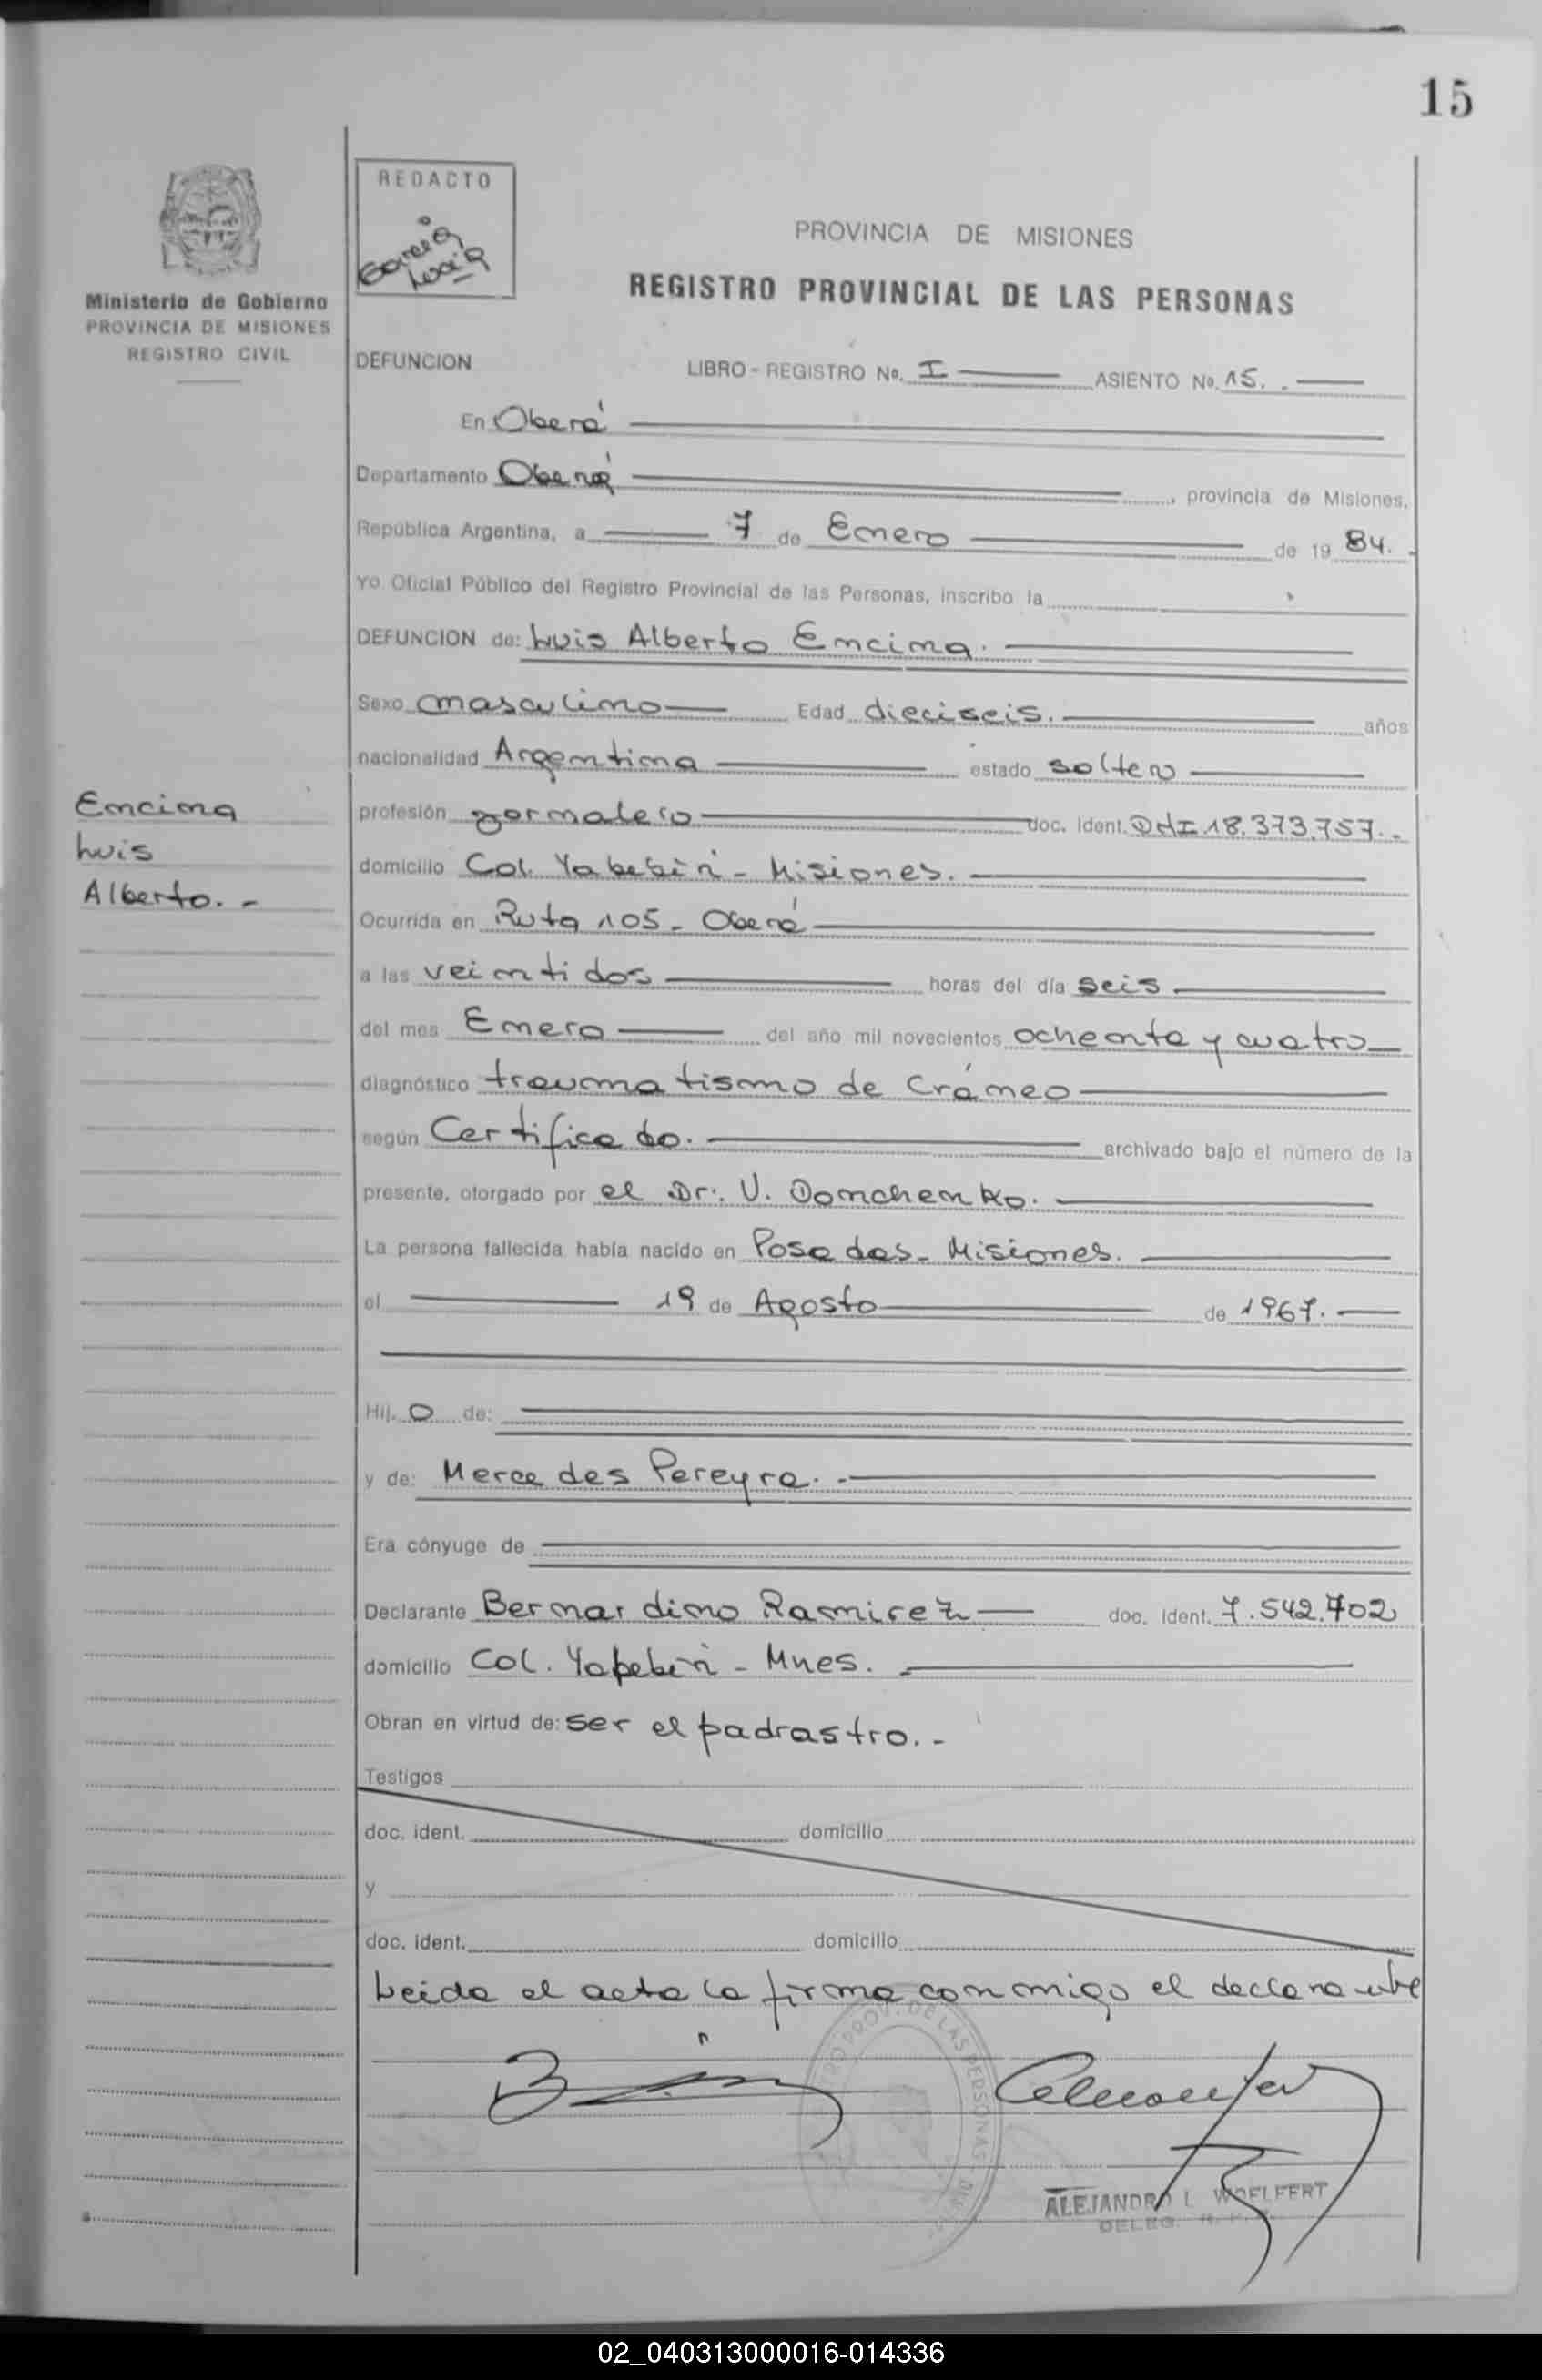 15
REDACTO
García
Luis
PROVINCIA DE MISIONES
REGISTRO PROVINCIAL DE LAS PERSONAS
Ministerio de Gobierno
PROVINCIA DE MISIONES
REGISTRO CIVIL
DEFUNCION LIBRO - REGISTRO No. I ASIENTO No. 15.
En Oberá
Departamento Oberá, provincia de Misiones,
República Argentina, a 7 de Enero de 1984.
Yo Oficial Público del Registro Provincial de las Personas, inscribo la
DEFUNCION de: Luis Alberto Encina.
Sexo masculino Edad dieciseis. años
nacionalidad Argentina estado soltero
Encina
Luis
Alberto. -
profesión jornalero doc. ident. DNI 18.373.757. -
domicilio Col. Yabebiri - Misiones.
Ocurrida en Ruta 105 - Oberá
a las veintidos horas del día seis
del mes Enero del año mil novecientos ochenta y cuatro
diagnóstico traumatismo de Cráneo
según Certificado. archivado bajo el número de la
presente, otorgado por el Dr. V. Donchenko.
La persona fallecida había nacido en Posadas - Misiones.
el 19 de Agosto de 1967.
Hij o de:
y de: Mercedes Pereyra. -
Era cónyuge de
Declarante Bernardino Ramirez doc. ident. 7.542.702
domicilio Col. Yabebiri - Mnes.
Obran en virtud de: ser el padrastro. -
Testigos
doc. ident. domicilio
y
doc. ident. domicilio
Leida el acta la firma conmigo el declarante
PROV. DE LAS PERSONAS
ALEJANDRO L. WOELFERT
DELEG. R. P.
02_040313000016-014336